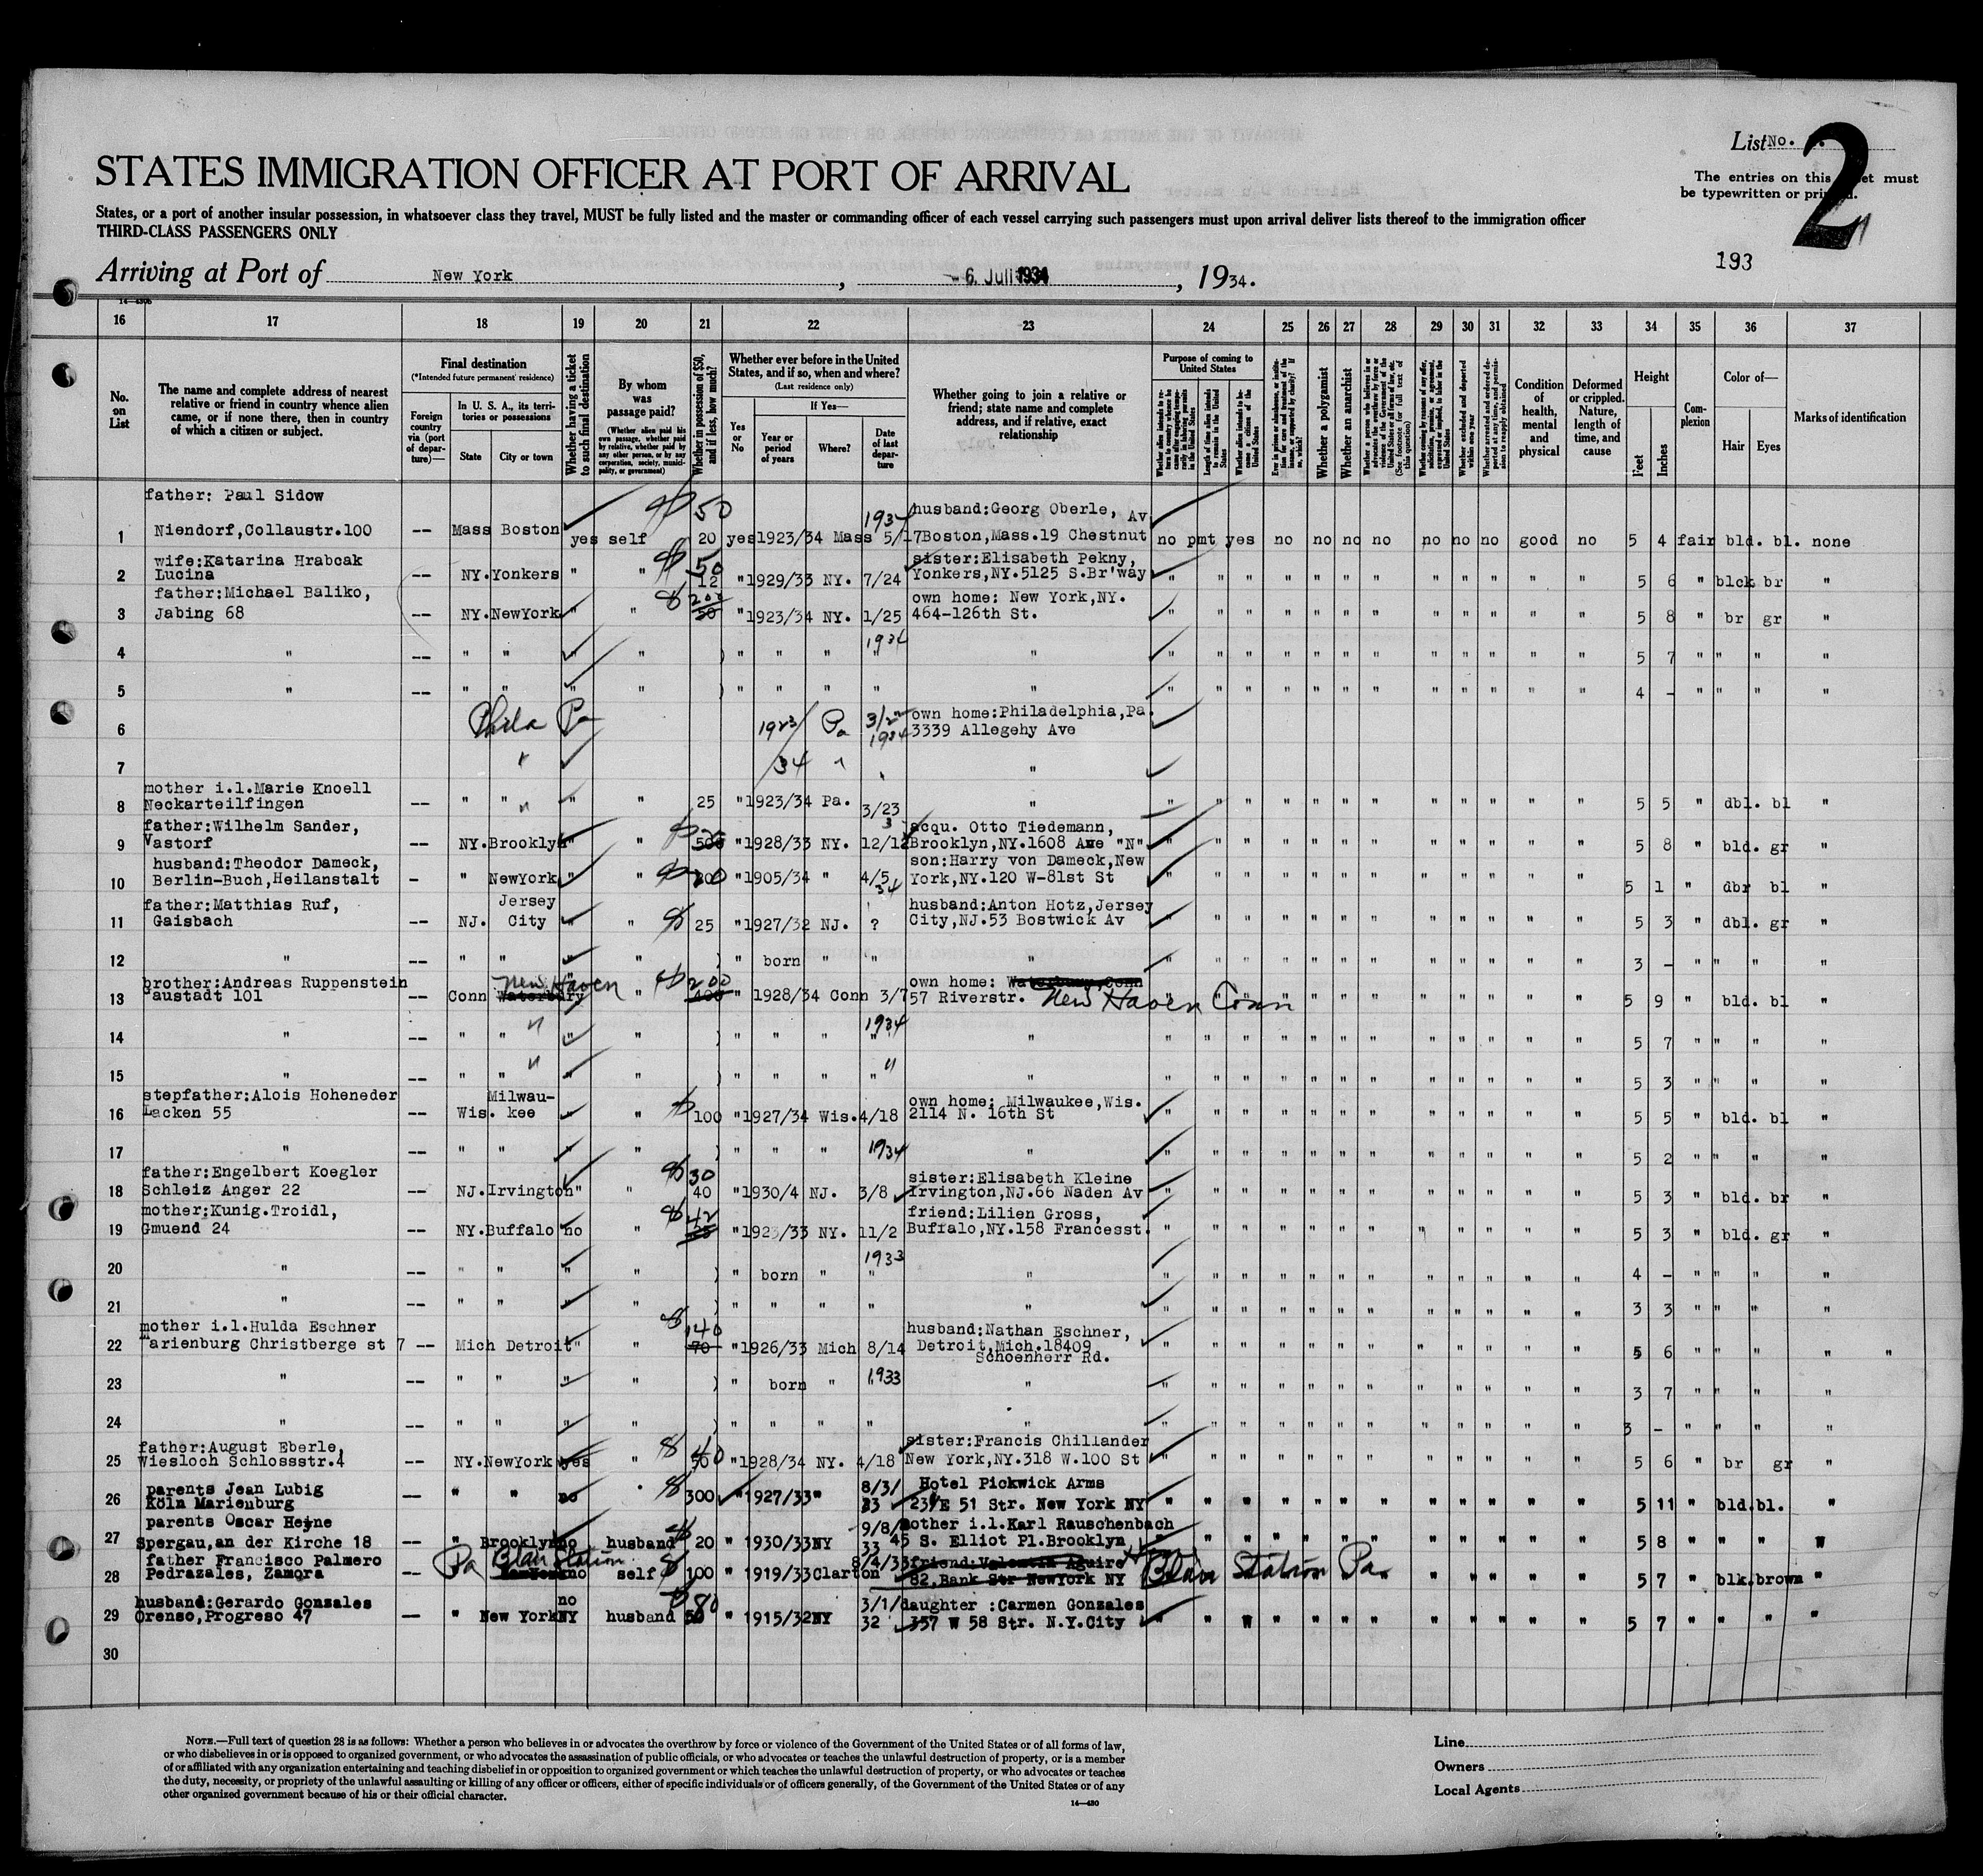 List No. 2
STATES IMMIGRATION OFFICER AT PORT OF ARRIVAL
The entries on this sheet must
be typewritten or printed.
States, or a port of another insular possession, in whatsoever class they travel, MUST be fully listed and the master or commanding officer of each vessel carrying such passengers must upon arrival deliver lists thereof to the immigration officer
THIRD-CLASS PASSENGERS ONLY
193
Arriving at Port of New York, - 6. Juli 1934, 1934.
16 17 18 19 20 21 22 23 24 25 26 27 28 29 30 31 32 33 34 35 36 37
No. on List
The name and complete address of nearest relative or friend in country whence alien came, or if none there, then in country of which a citizen or subject.
Final destination
(*Intended future permanent residence)
Foreign country via (port of departure)—
In U. S. A., its territories or possessions
State
City or town
Whether having a ticket to such final destination
By whom was passage paid?
(Whether alien paid his own passage, whether paid by relative, whether paid by any other person, or by any corporation, society, municipality, or government)
Whether in possession of $50, and if less, how much?
Whether ever before in the United States, and if so, when and where?
(Last residence only)
Yes or No
If Yes—
Year or period of years
Where?
Date of last departure
Whether going to join a relative or friend; state name and complete address, and if relative, exact relationship
Purpose of coming to United States
Whether a polygamist
Whether an anarchist
Condition of health, mental and physical
Deformed or crippled. Nature, length of time, and cause
Height
Feet
Inches
Complexion
Color of—
Hair
Eyes
Marks of identification
father: Paul Sidow 50 1934 husband:Georg Oberle, Av
1 Niendorf,Collaustr.100 -- Mass Boston yes self 20 yes 1923/34 Mass 5/17 Boston,Mass.19 Chestnut no pmt yes no no no no no no no good no 5 4 fair bld. bl. none
wife:Katarina Hrabcak 50 sister:Elisabeth Pekny,
2 Lucina -- NY. Yonkers " " 12 " 1929/33 NY. 7/24 Yonkers,NY.5125 S.Br'way " " " " " " " " " " " " 5 6 " blck br "
father:Michael Baliko, 200 own home: New York,NY.
3 Jabing 68 -- NY. NewYork " " 50 " 1923/34 NY. 1/25 464-126th St. " " " " " " " " " " " " 5 8 " br gr "
1934
4 " -- " " " " ) " " " " " " " " " " " " " " " " " " 5 7 " " " "
5 " -- " " " " ) " " " " " " " " " " " " " " " " " " 4 - " " " "
Phila Pa 1923/ Pa 3/22 own home:Philadelphia,Pa.
6 1934 3339 Allegehy Ave
7 " /34 " " "
mother i.l.Marie Knoell
8 Neckarteilfingen -- " " " " 25 " 1923/34 Pa. 3/23 " " " " " " " " " " " " " 5 5 " dbl. bl "
father:Wilhelm Sander, 3 acqu. Otto Tiedemann,
9 Vastorf -- NY. Brooklyn " " 500 " 1928/33 NY. 12/12 Brooklyn,NY.1608 Ave "N" " " " " " " " " " " " " 5 8 " bld. gr "
husband:Theodor Dameck, son:Harry von Dameck,New
10 Berlin-Buch,Heilanstalt - " NewYork " " " 1905/34 " 4/5 34 York,NY.120 W-81st St " " " " " " " " " " " " 5 1 " dbr bl "
father:Matthias Ruf, Jersey husband:Anton Hotz,Jersey
11 Gaisbach -- NJ. City " " 25 " 1927/32 NJ. ? City,NJ.53 Bostwick Av " " " " " " " " " " " " 5 3 " dbl. gr "
12 " -- " " " " ) " born " " " " " " " " " " " " " " " " 3 - " " " "
brother:Andreas Ruppenstein New Haven 200 own home: Waterbury,Conn
13 austadt 101 -- Conn Waterbury " 400 " 1928/34 Conn 3/7 57 Riverstr. New Haven Conn " " " " " " " " " 5 9 " bld. bl "
1934
14 " -- " " " " ) " " " " " " " " " " " " " " " " " " 5 7 " " " "
15 " -- " " " " ) " " " " " " " " " " " " " " " " " " 5 3 " " " "
stepfather:Alois Hoheneder Milwau- own home: Milwaukee,Wis.
16 Lacken 55 -- Wis. kee " " 100 " 1927/34 Wis. 4/18 2114 N. 16th St " " " " " " " " " " " " 5 5 " bld. bl "
1934
17 " -- " " " " ) " " " " " " " " " " " " " " " " " 5 2 " " " "
father:Engelbert Koegler 30 sister:Elisabeth Kleine
18 Schleiz Anger 22 -- NJ. Irvington " " 40 " 1930/4 NJ. 3/8 Irvington,NJ.66 Naden Av " " " " " " " " " " " " 5 3 " bld. br "
mother:Kunig.Troidl, 42 friend:Lilien Gross,
19 Gmuend 24 -- NY. Buffalo no " " 1923/33 NY. 11/2 Buffalo,NY.158 Francesst. " " " " " " " " " " " " 5 3 " bld. gr "
1933
20 " -- " " " " ) " born " " " " " " " " " " " " " " " " 4 - " " " "
21 " -- " " " " ) " " " " " " " " " " " " " " " " " " 3 3 " " " "
mother i.l.Hulda Eschner 140 husband:Nathan Eschner,
22 Marienburg Christberge st 7 -- Mich Detroit " " 70 " 1926/33 Mich 8/14 Detroit,Mich.18409 " " " " " " " " " " " " 5 6 " " " " "
Schoenherr Rd.
1933
23 " -- " " " " ) " born " " " " " " " " " " " " " " " 3 7 " " " "
24 " -- " " " " ) " " " " " " " " " " " " " " " " " " 3 - " " " "
father:August Eberle, 40 sister:Francis Chillander
25 Wiesloch Schlossstr.4 -- NY. NewYork yes " 50 " 1928/34 NY. 4/18 New York,NY.318 W.100 St " " " " " " " " " " " " 5 6 " br gr "
parents Jean Lubig 8/3/ Hotel Pickwick Arms
26 Köln Marienburg -- " " no " 300 " 1927/33 " 33 E 51 Str. New York NY " " " " " " " " " " " " 5 11 " bld. bl. "
parents Oscar Heyne 9/8/ mother i.l.Karl Rauschenbach
27 Spergau,an der Kirche 18 -- " Brooklyn no husband 20 " 1930/33 NY 33 45 S. Elliot Pl.Brooklyn " " " " " " " " " " " " 5 8 " " " "
father Francisco Palmero Pa Blair Station 8/4/33 friend:Valentin Aguire
28 Pedrazales, Zamora -- NewYork no self 100 " 1919/33 Clarton 82,Bank Str NewYork NY Blair Station Pa. " " " " " " 5 7 " blk. brown "
husband:Gerardo Gonzales no 80 3/1/ daughter :Carmen Gonzales
29 Orenso,Progreso 47 -- " New York NY husband 50 " 1915/32 NY 32 357 W 58 Str. N.Y.City " " " " " " " " " " " " 5 7 " " " "
30
NOTE.—Full text of question 28 is as follows: Whether a person who believes in or advocates the overthrow by force or violence of the Government of the United States or of all forms of law,
or who disbelieves in or is opposed to organized government, or who advocates the assassination of public officials, or who advocates or teaches the unlawful destruction of property, or is a member
of or affiliated with any organization entertaining and teaching disbelief in or opposition to organized government or which teaches the unlawful destruction of property, or who advocates or teaches
the duty, necessity, or propriety of the unlawful assaulting or killing of any officer or officers, either of specific individuals or of officers generally, of the Government of the United States or of any
other organized government because of his or their official character.
14—430
Line
Owners
Local Agents